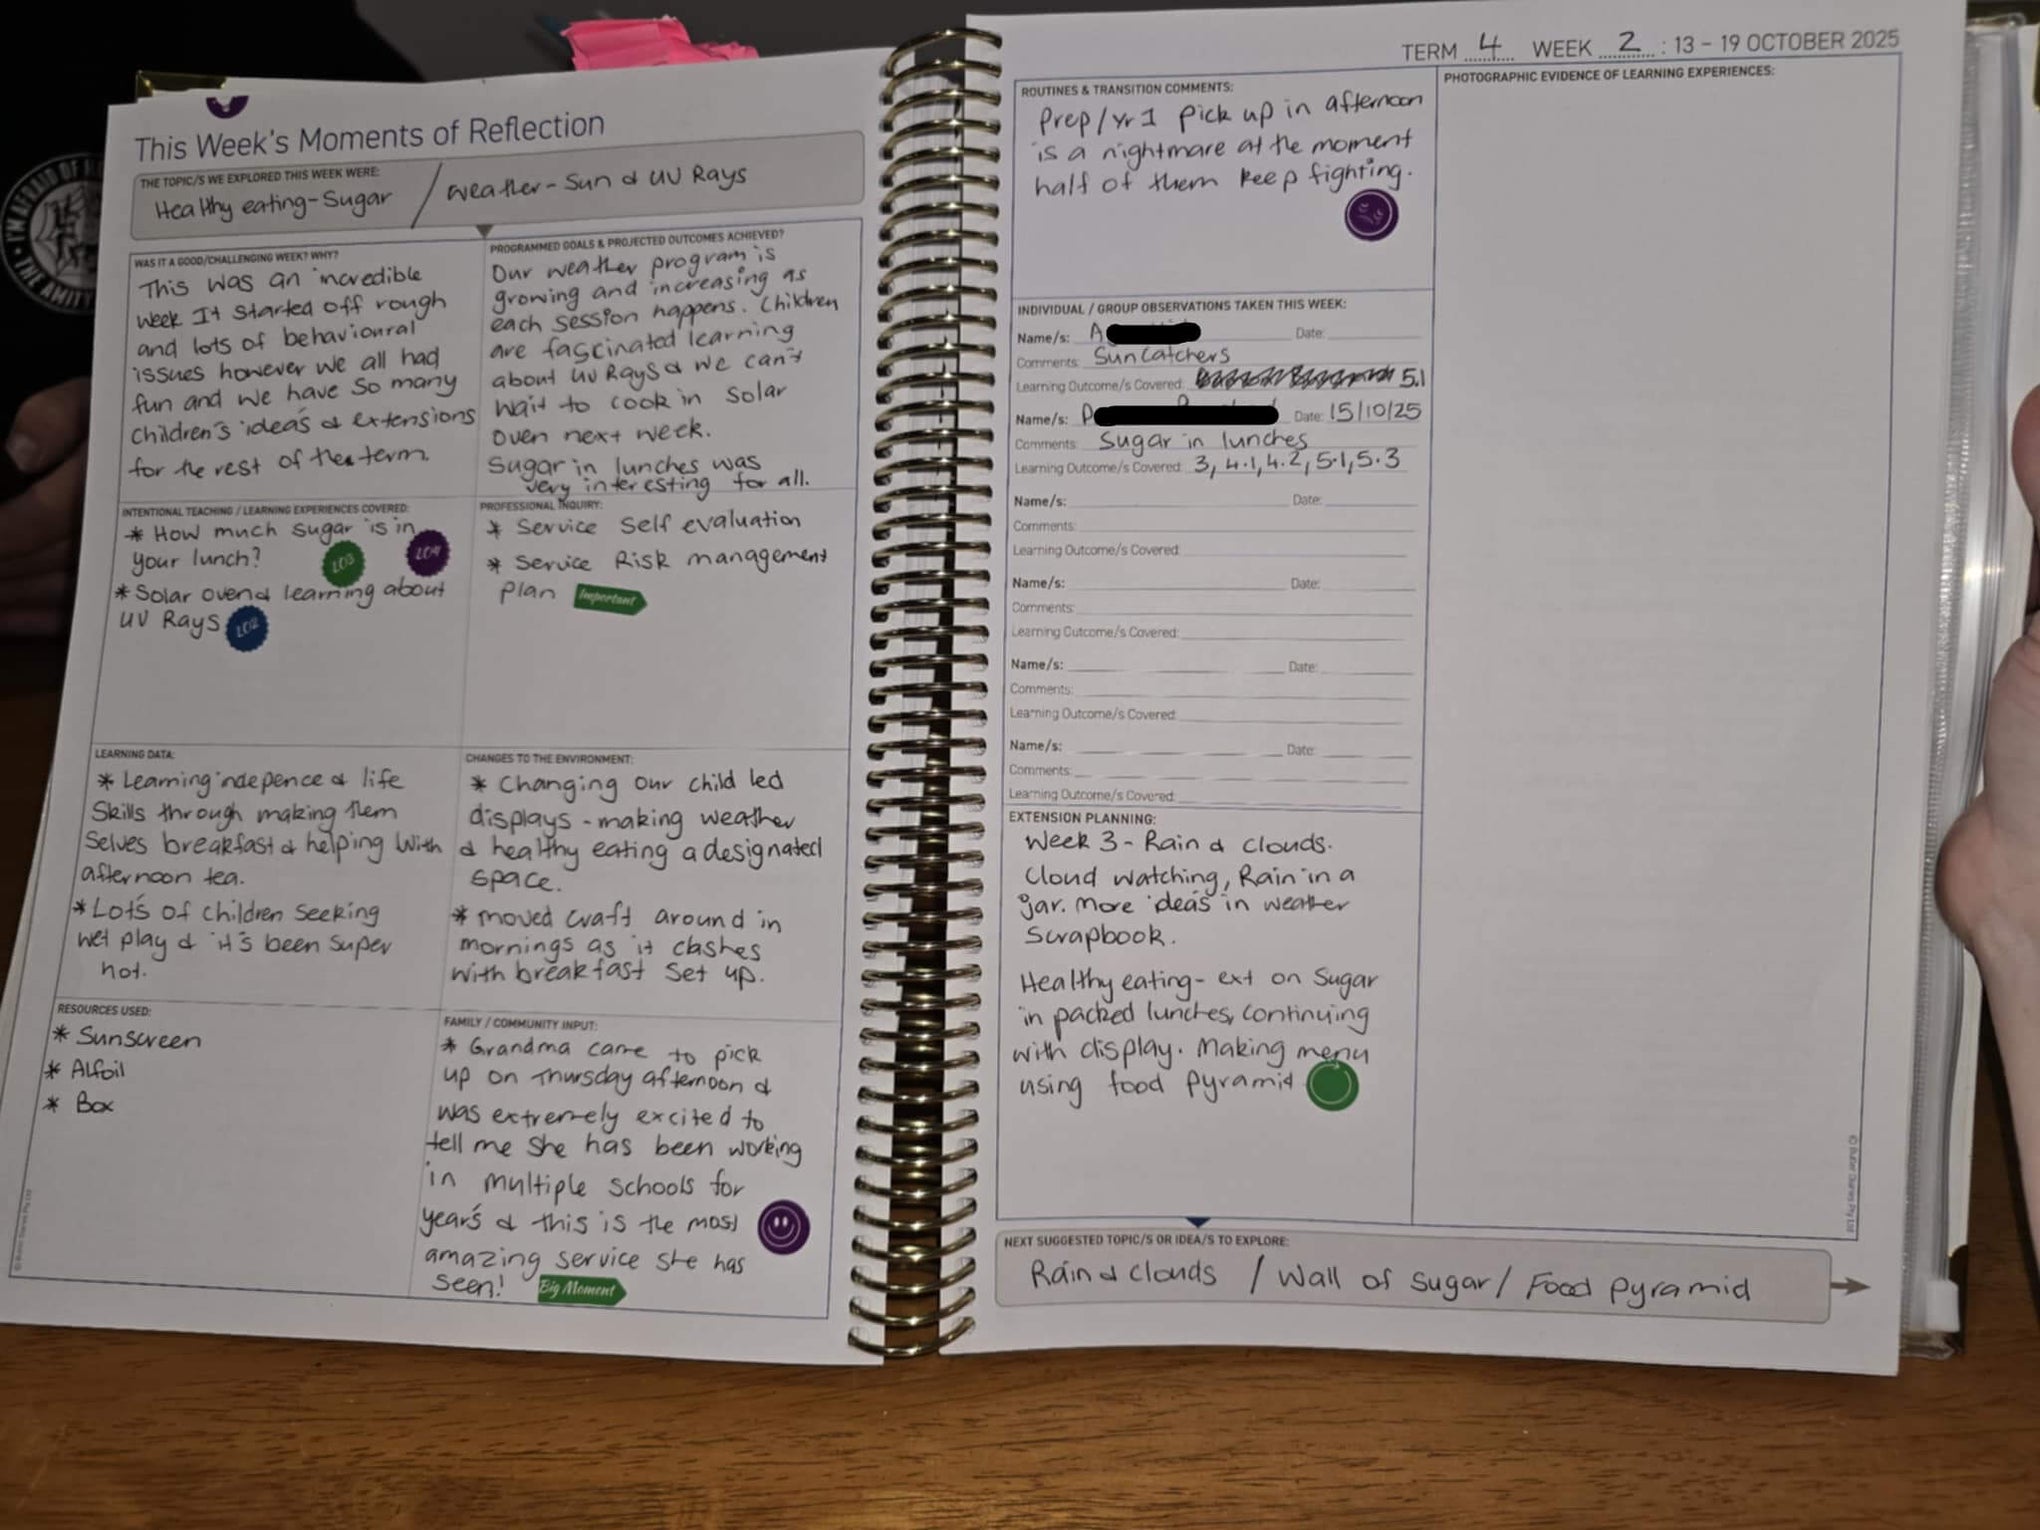 This Week's Moments of Reflection
THE TOPIC/S WE EXPLORED THIS WEEK WERE:
Healthy eating - Sugar / Weather - Sun & UV Rays
WAS IT A GOOD/CHALLENGING WEEK? WHY?
This was an incredible
week It started off rough
and lots of behavioural
issues however we all had
fun and we have so many
children's idea's & extensions
for the rest of the term.
PROGRAMMED GOALS & PROJECTED OUTCOMES ACHIEVED?
Our weather program is
growing and increasing as
each session happens. Children
are fascinated learning
about UV Rays & we can't
wait to cook in solar
oven next week.
Sugar in lunches was
very interesting for all.
INTENTIONAL TEACHING / LEARNING EXPERIENCES COVERED:
* How much sugar is in
your lunch? LO3 LO4
* Solar oven & learning about
UV Rays LO2
PROFESSIONAL INQUIRY:
* Service Self evaluation
* Service Risk management
plan Important
LEARNING DATA:
* Learning indepence & life
Skills through making them
selves breakfast & helping with
afternoon tea.
* Lot's of children seeking
wet play & it's been super
hot.
CHANGES TO THE ENVIRONMENT:
* Changing our child led
displays - making weather
& healthy eating a designated
space.
* moved craft around in
mornings as it clashes
with breakfast set up.
RESOURCES USED:
* Sunscreen
* Alfoil
* Box
FAMILY / COMMUNITY INPUT:
* Grandma came to pick
up on Thursday afternoon &
was extremely excited to
tell me she has been working
in multiple schools for
year's & this is the most
amazing service she has
seen! Big Moment
TERM 4 WEEK 2 : 13 - 19 OCTOBER 2025
ROUTINES & TRANSITION COMMENTS:
Prep/Yr 1 pick up in afternoon
is a nightmare at the moment
half of them keep fighting.
INDIVIDUAL / GROUP OBSERVATIONS TAKEN THIS WEEK:
Name/s: A Date:
Comments: Suncatchers
Learning Outcome/s Covered: 5.1
Name/s: Date: 15/10/25
Comments: Sugar in lunches
Learning Outcome/s Covered: 3, 4.1, 4.2, 5.1, 5.3
Name/s: Date:
Comments:
Learning Outcome/s Covered:
Name/s: Date:
Comments:
Learning Outcome/s Covered:
Name/s: Date:
Comments:
Learning Outcome/s Covered:
Name/s: Date:
Comments:
Learning Outcome/s Covered:
EXTENSION PLANNING:
Week 3 - Rain & clouds.
Cloud watching, Rain in a
jar. More idea's in weather
Scrapbook.
Healthy eating - ext on Sugar
in packed lunches, continuing
with display. Making menu
using food pyramid
PHOTOGRAPHIC EVIDENCE OF LEARNING EXPERIENCES:
NEXT SUGGESTED TOPIC/S OR IDEA/S TO EXPLORE:
Rain & Clouds / Wall of Sugar / Food pyramid